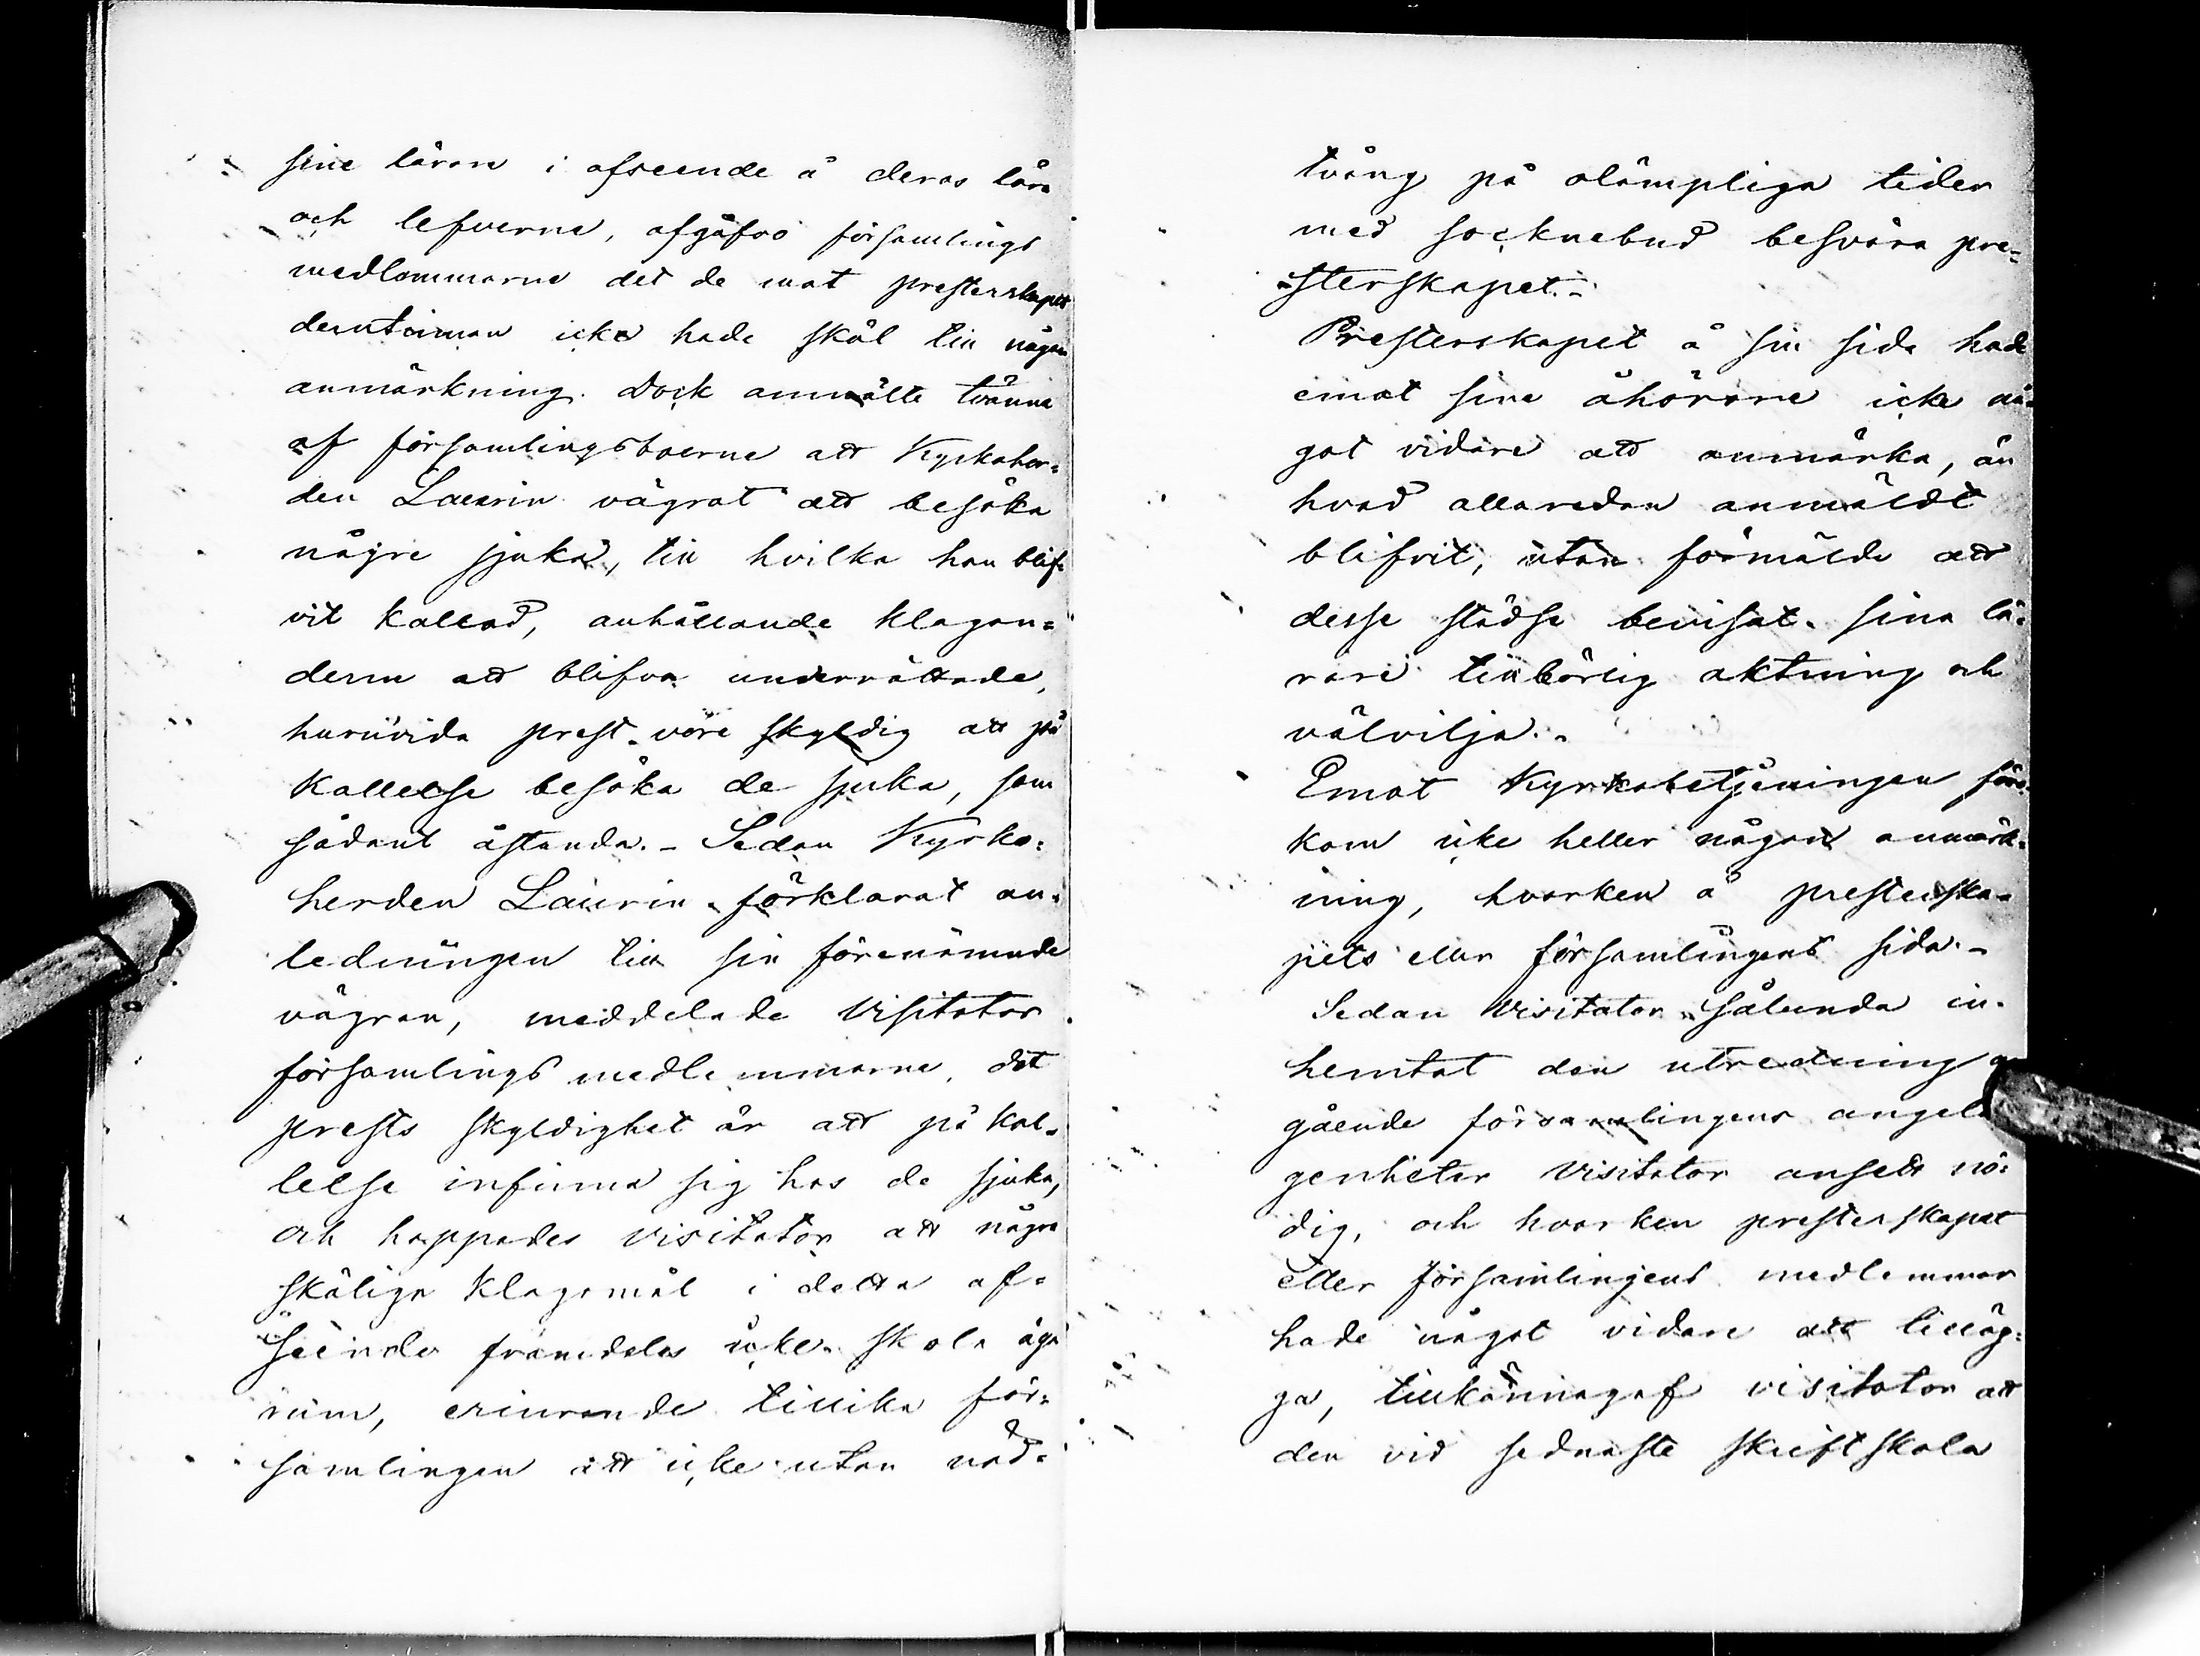 sine lärare i afseende å deras lära
och lefverne, afgåfvo församlings
medlemmarne det de mot presterskapet
derutinnan icke hade skäl till någon
anmärkning. Dock anmälte tvänne
af församlingsboerne att Kyrkoher=
den Laurin vägrat att besöka
någre sjuka, till hvilka han blif=
vit kallad, anhållande klagan=
derne att blifva underrättade,
huruvida prest vore skyldig att på
kallelse besöka de sjuka, som
sådant åstunda. - Sedan Kyrko=
herden Laurin förklarat an=
ledningen till sin förenämnde
vägran, meddelade Visitator
församlings medlemmarne, det
prests skyldighet är att på kal=
lelse infinna sig hos de sjuka,
och hoppades visitator att några
skäliga klagomål i detta af=
seende framdeles icke skola äga
rum, erinrande tillika för=
samlingen att icke utan nöd=
tvång på olämpliga tider
med socknebud besvära pre=
=sterskapet. -
Presterskapet å sin sida hade
emot sine åhörare icke nå=
got vidare att anmärka, än
hvad allaredan anmäldt
blifvit, utan förmälde att
desse städse bevisat sina lä=
rare tillbörlig aktning och
välvilja. -
Emot Kyrkobetjeningen före=
kom icke heller någon anmärk=
ning, hvarken å presterska=
pets eller församlingens sida. -
Sedan Visitator sålunda in=
hemtat den utredning
gående församlingens angelä
genheter Visitator ansett nö=
dig, och hvarken presterskapet
eller församlingens medlemmar
hade något vidare att tilläg=
ga, tillkännagaf visitator att
den vid sednaste skriftskola